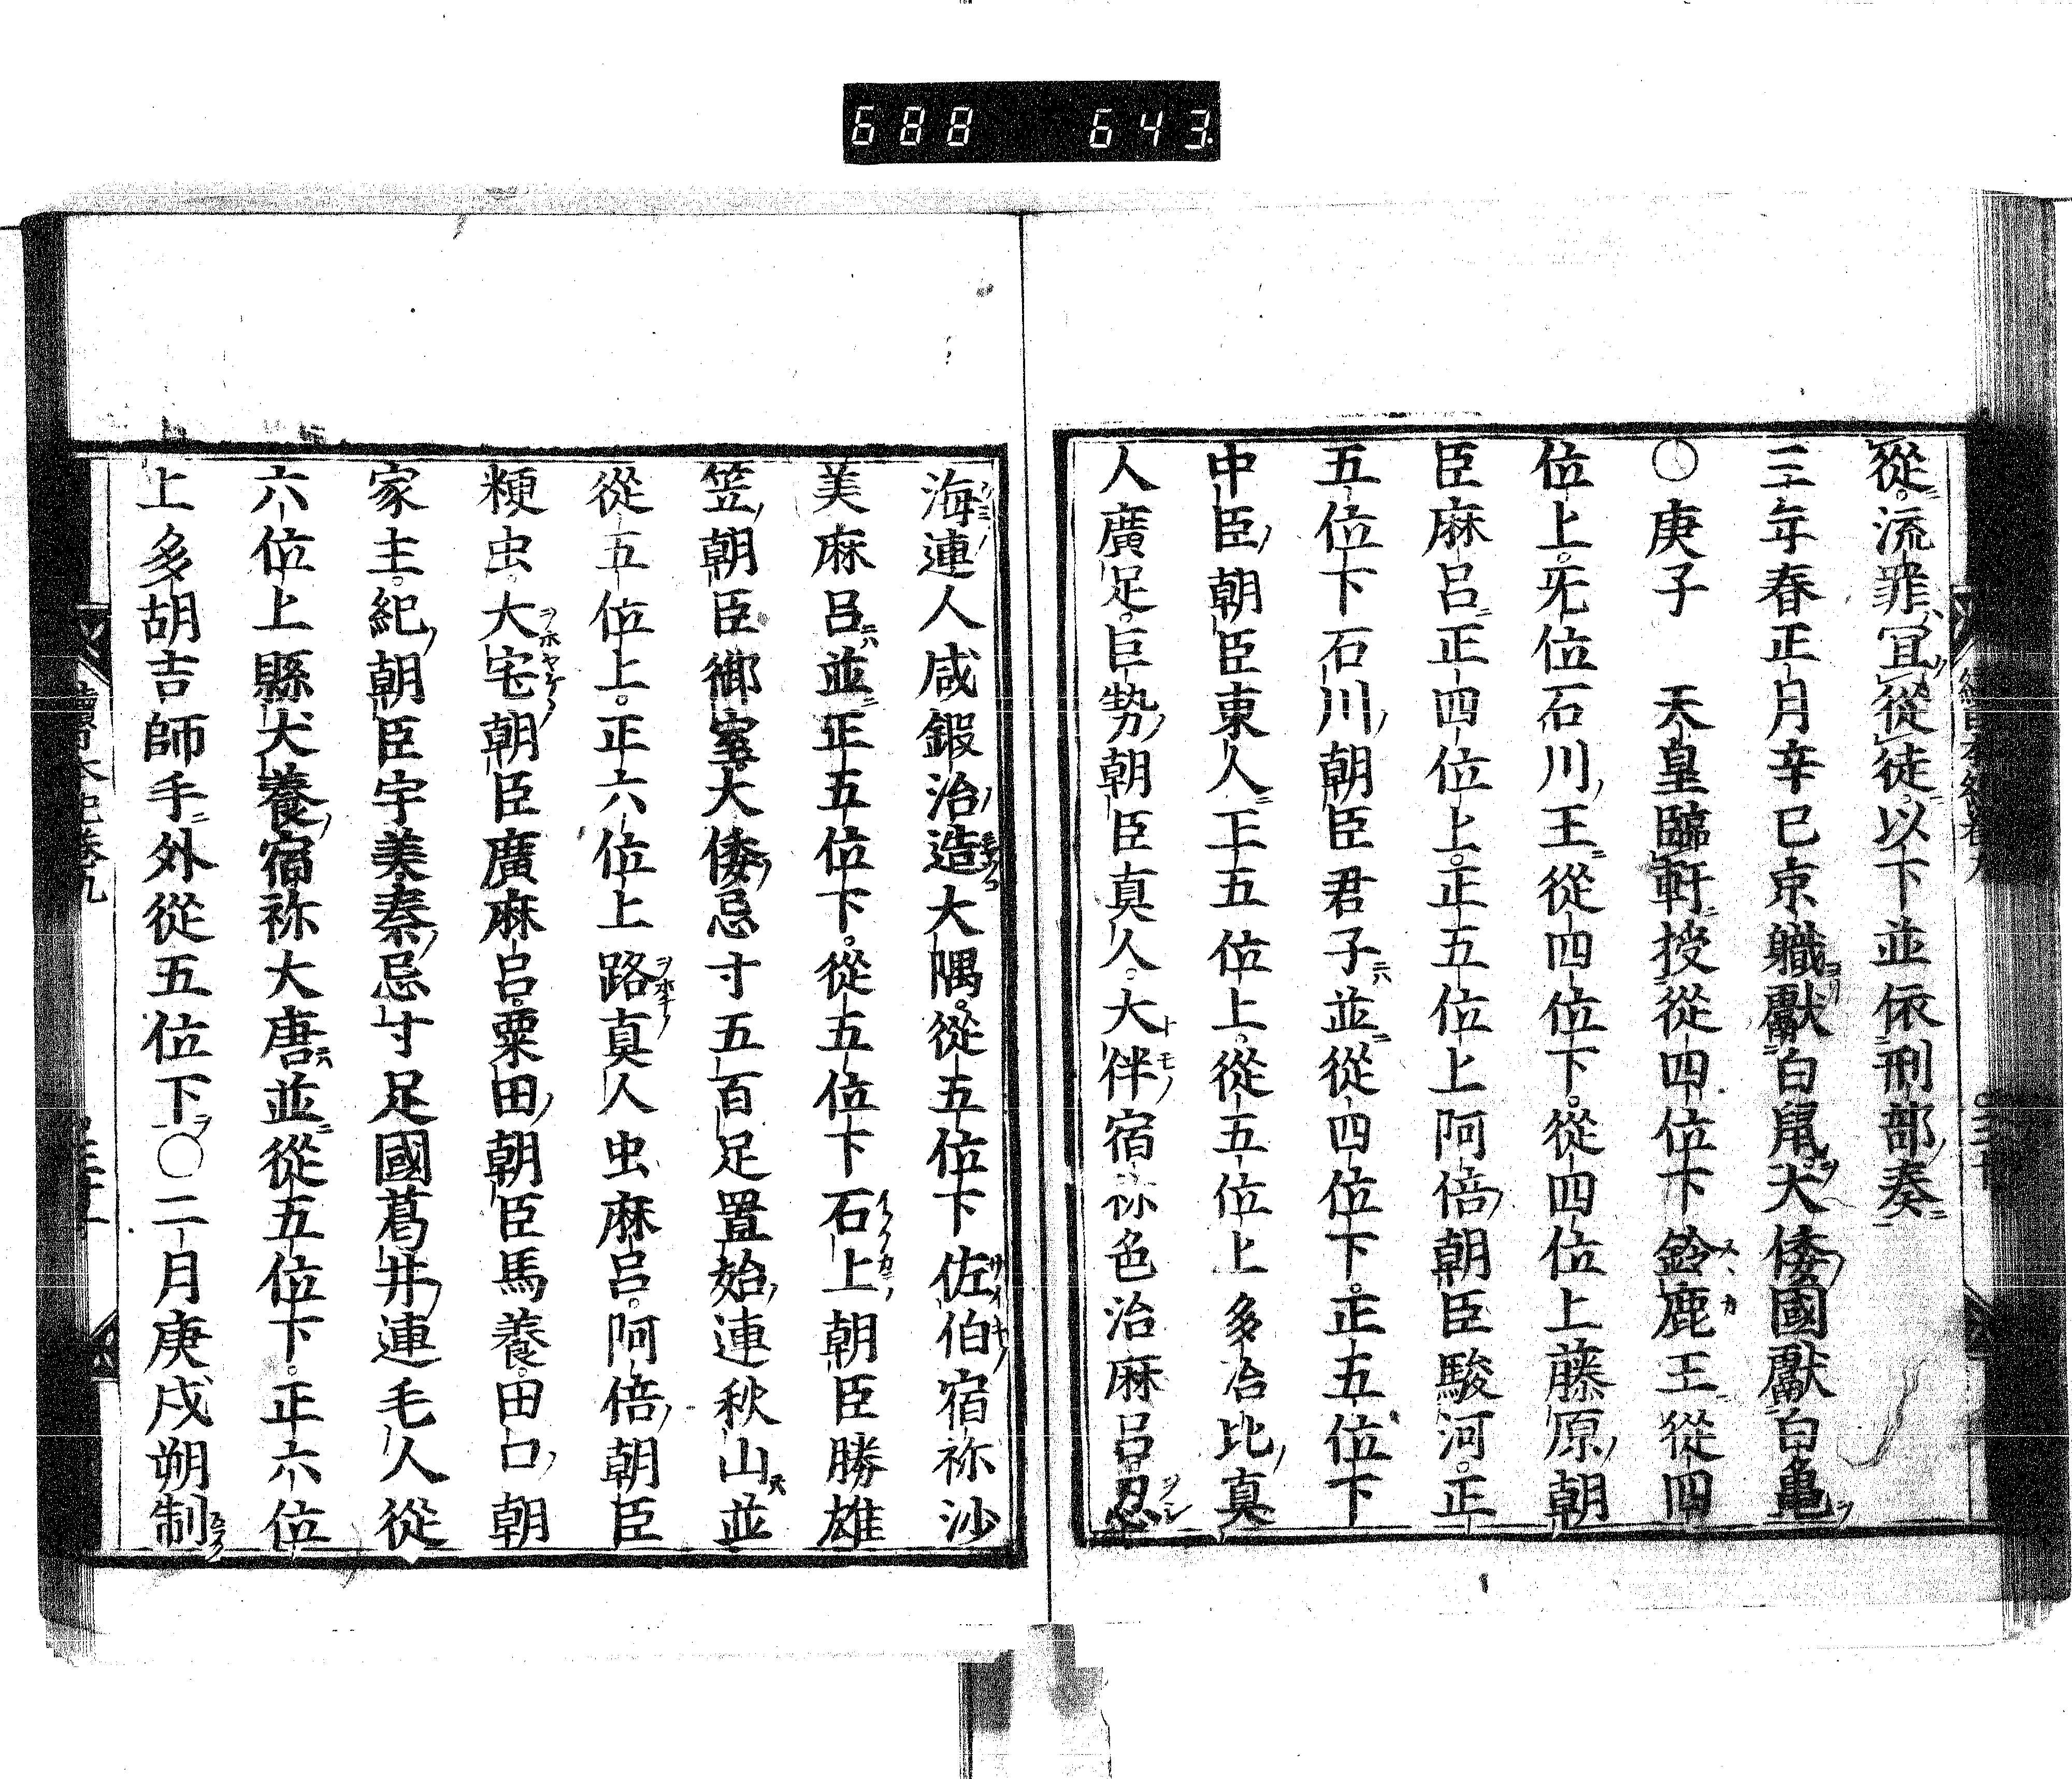 688 643
從流罪宜從徒以下並依刑部奏
三年春正月辛巳京職獻白鼠大倭國獻白龜
○庚子 天皇臨軒授從四位下鈴鹿王從四
位上无位石川王從四位下從四位上藤原朝
臣麻呂正四位上正五位上阿倍朝臣駿河正
五位下石川朝臣君子並從四位下正五位下
中臣朝臣東人正五位上從五位上多治比真
人廣足巨勢朝臣真人大伴宿祢色治麻呂忍
海連人成鍛治造大隅從五位下佐伯宿祢沙
美麻呂並正五位下從五位下石上朝臣勝雄
笠朝臣御室大倭忌寸五百足置始連秋山並
從五位上正六位上路真人虫麻呂阿倍朝臣
粳虫大宅朝臣廣麻呂粟田朝臣馬養田口朝
家主紀朝臣宇美秦忌寸足國葛井連毛人從
六位上縣犬養宿祢大唐並從五位下正六位
上多胡吉師手外從五位下○二月庚戌朔制